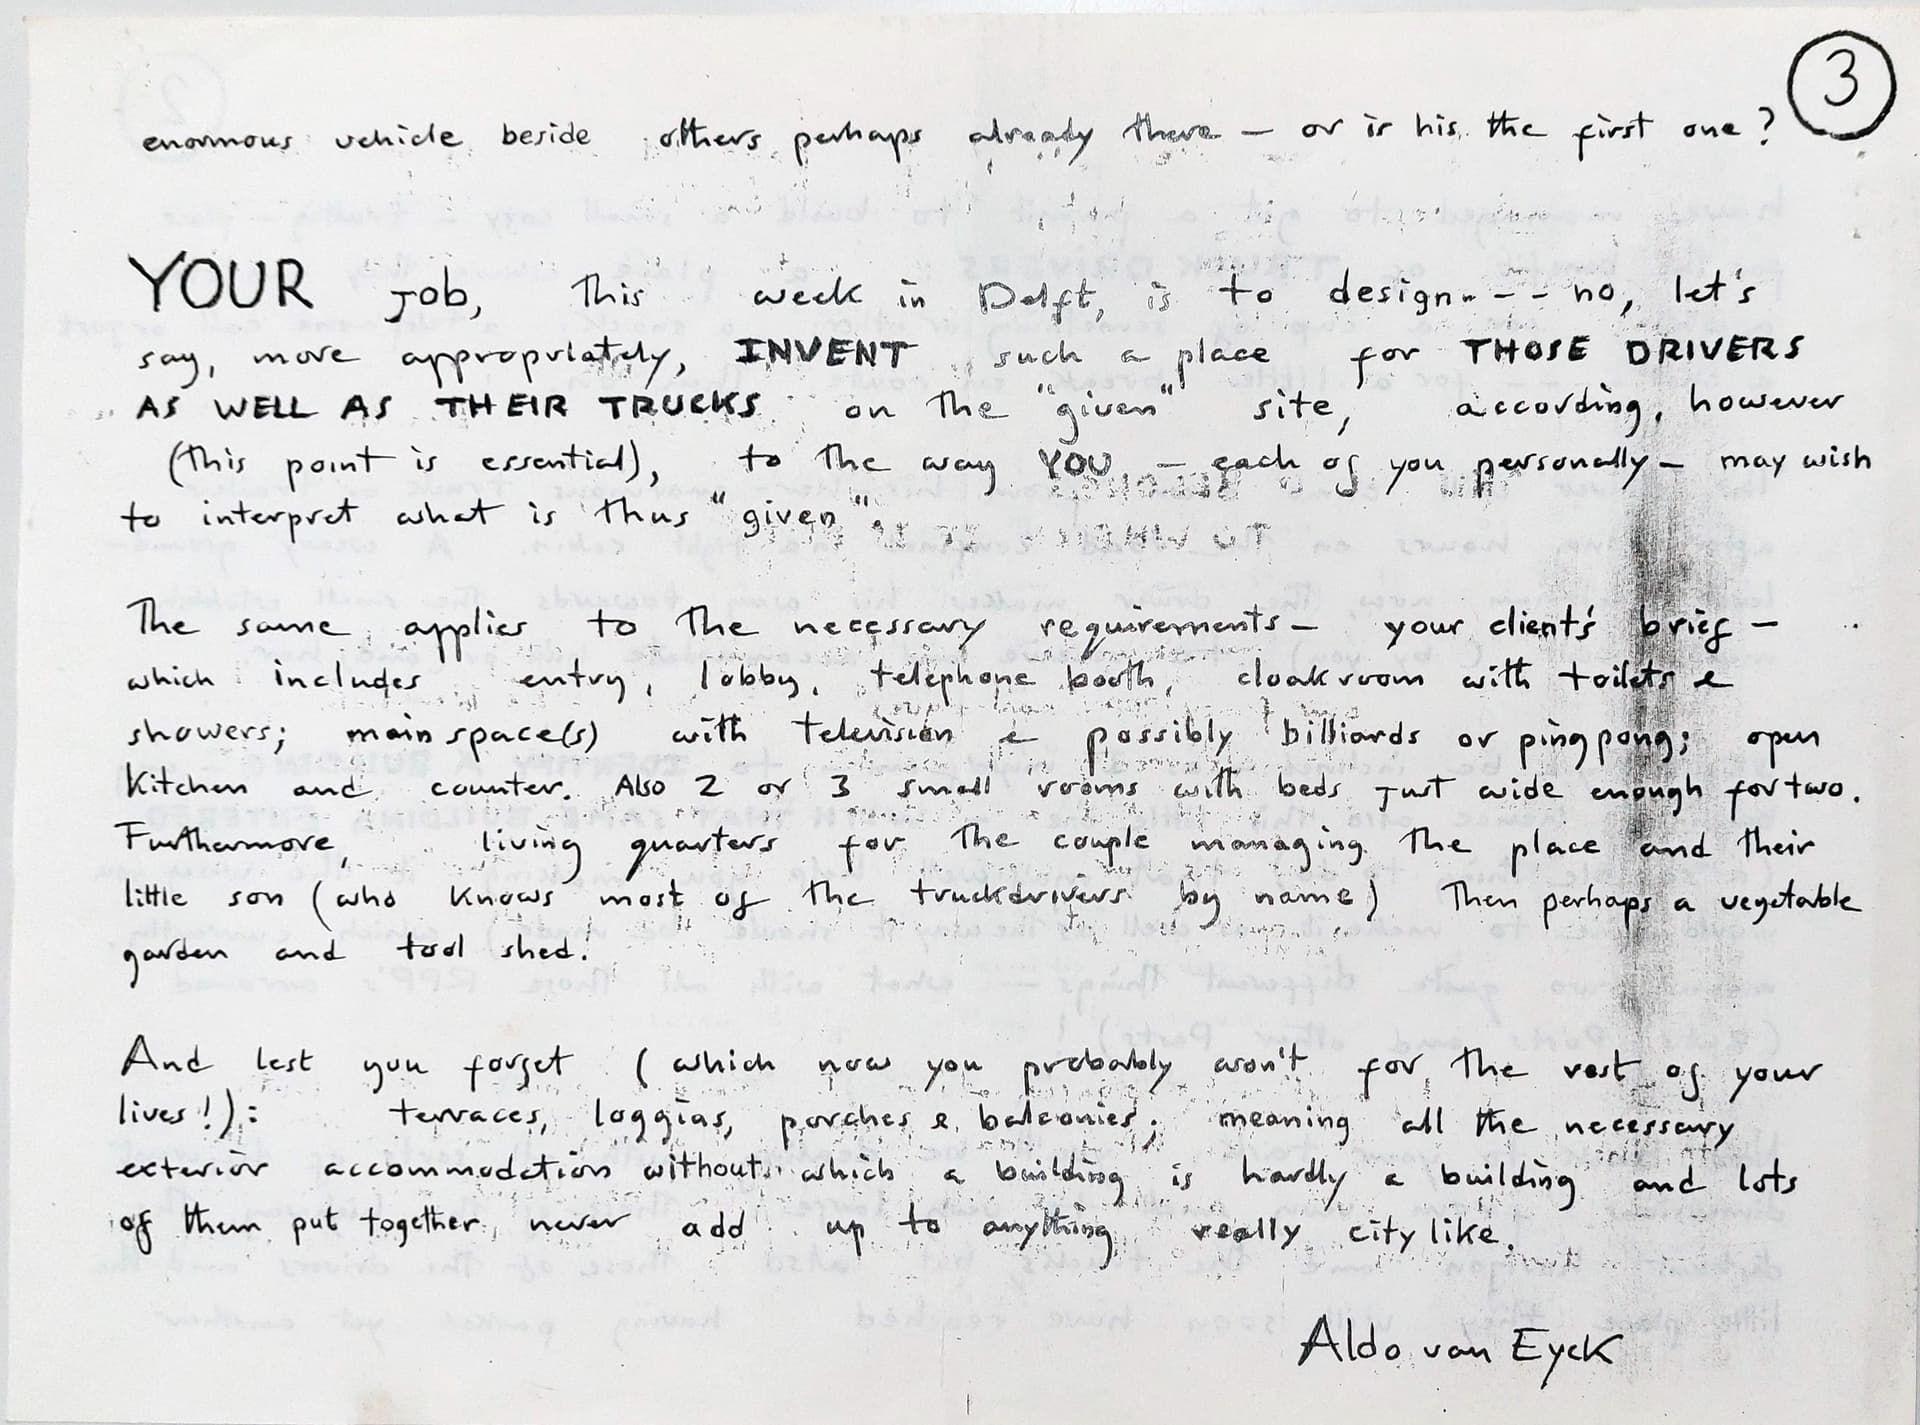 3
enormous vehicle beside others perhaps already there — or is his the first one?
YOUR job, this week in Delft, is to design---- no, let's
say, more appropriately, INVENT such a place for THOSE DRIVERS
AS WELL AS THEIR TRUCKS on the "given" site, according, however
(this point is essential), to the way YOU — each of you personally — may wish
to interpret what is thus "given".
The same applies to the necessary requirements — your client's brief —
which includes entry, lobby, telephone booth, cloakroom with toilets &
showers; main space(s) with television & possibly billiards or pingpong; open
kitchen and counter. Also 2 or 3 small rooms with beds just wide enough for two.
Furthermore, living quarters for the couple managing the place and their
little son (who knows most of the truckdrivers by name) Then perhaps a vegetable
garden and tool shed!
And lest you forget (which now you probably won't for the rest of your
lives!): terraces, loggias, porches & balconies; meaning all the necessary
exterior accommodation without which a building is hardly a building and lots
of them put together never add up to anything really citylike.
Aldo van Eyck